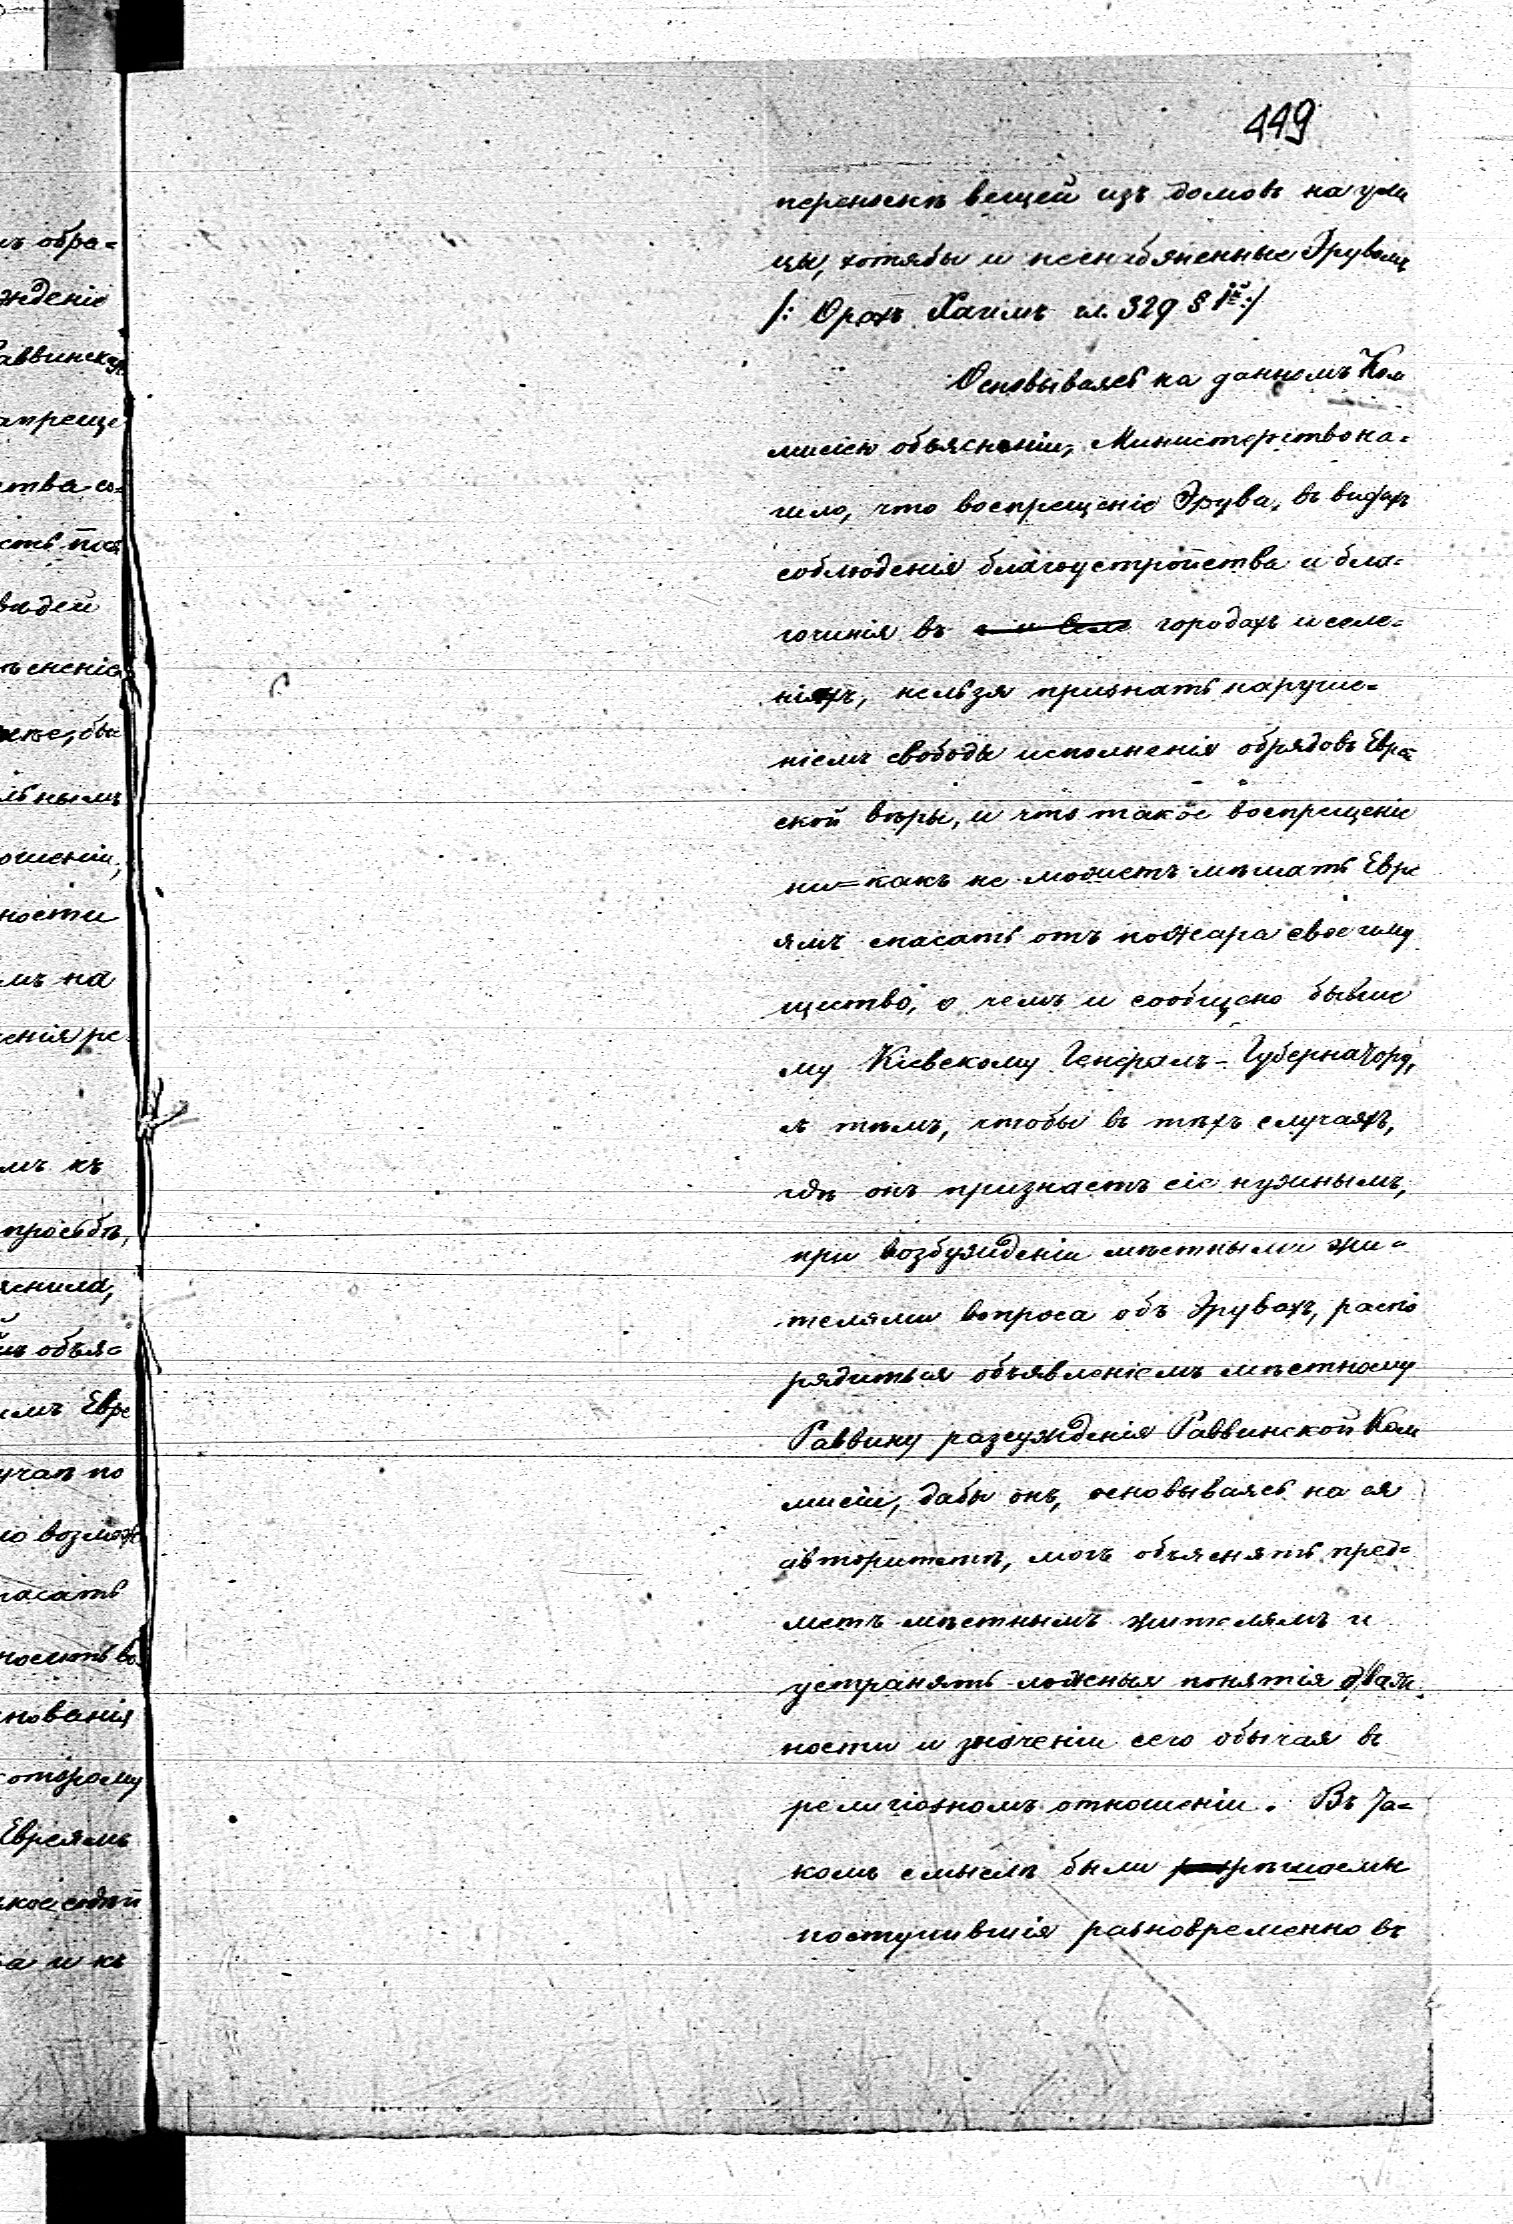 449
переноскѣ вещей изъ домовъ на ули
цы, хотябы и неснабженные Эрувомъ
/: Орахъ Хаимъ гл. 329 § 1й :/
Основываясь на данномъ Ком
мисіею объясненіи, Министерство на-
шло, что воспрещеніе Эрува, въ видахъ
соблюденія благоустройства и бла-
гочинія въ городахъ и селе-
ніяхъ, нельзя признать наруше-
ніемъ свободы исполненія обрядовъ Еврей
ской вѣры, и что такое воспрещеніе
ни=какъ не можетъ мѣшать Евре
ямъ спасать отъ пожара свое иму
щество, о чемъ и сообщено бывше
му Кіевскому Генералъ-Губернатору,
съ тѣмъ, чтобы въ тѣхъ случаяхъ,
гдѣ онъ признаетъ сіе нужнымъ,
при возбужденіи мѣстными жи-
телями вопроса объ Эрувахъ, распо
рядиться объявленіемъ мѣстному
Раввину разсужденія Раввинской Ком
мисіи, дабы онъ, основываясь на ея
авторитетѣ, могъ объяснять пред-
метъ мѣстнымъ жителямъ и
устранять ложныя понятія о важ
ности и значеніи сего обычая въ
религіозномъ отношеніи. Въ та-
комъ смыслѣ были разрѣшаемы
поступившія разновременно въ
ъ обра-
жденіе
аввинскую
апреще
ства со-
вадеи
ѣсненіе
льнымъ
ошеніи,
ности
мъ на
енія ре
мъ къ
просьбѣ,
яснила,
объя-
имъ Евре
учаѣ по
но возмож
пасать
нованія
оторому
Евреямъ
а и къ